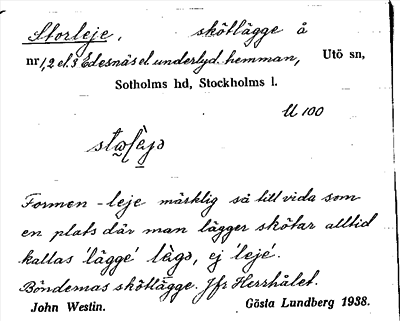 Storleje, skötlägge å
nr 1, 2 el. 3 Edesnäs el. underlyd. hemman, Utö sn,
Sotholms hd, Stockholms l.
U 100
Formen -leje märklig så till vida som
en plats där man lägger skötar alltid
kallas 'lägge' lägə, ej 'leje'.
Böndernas skötlägge. Jfr Herrhålet.
John Westin. Gösta Lundberg 1938.